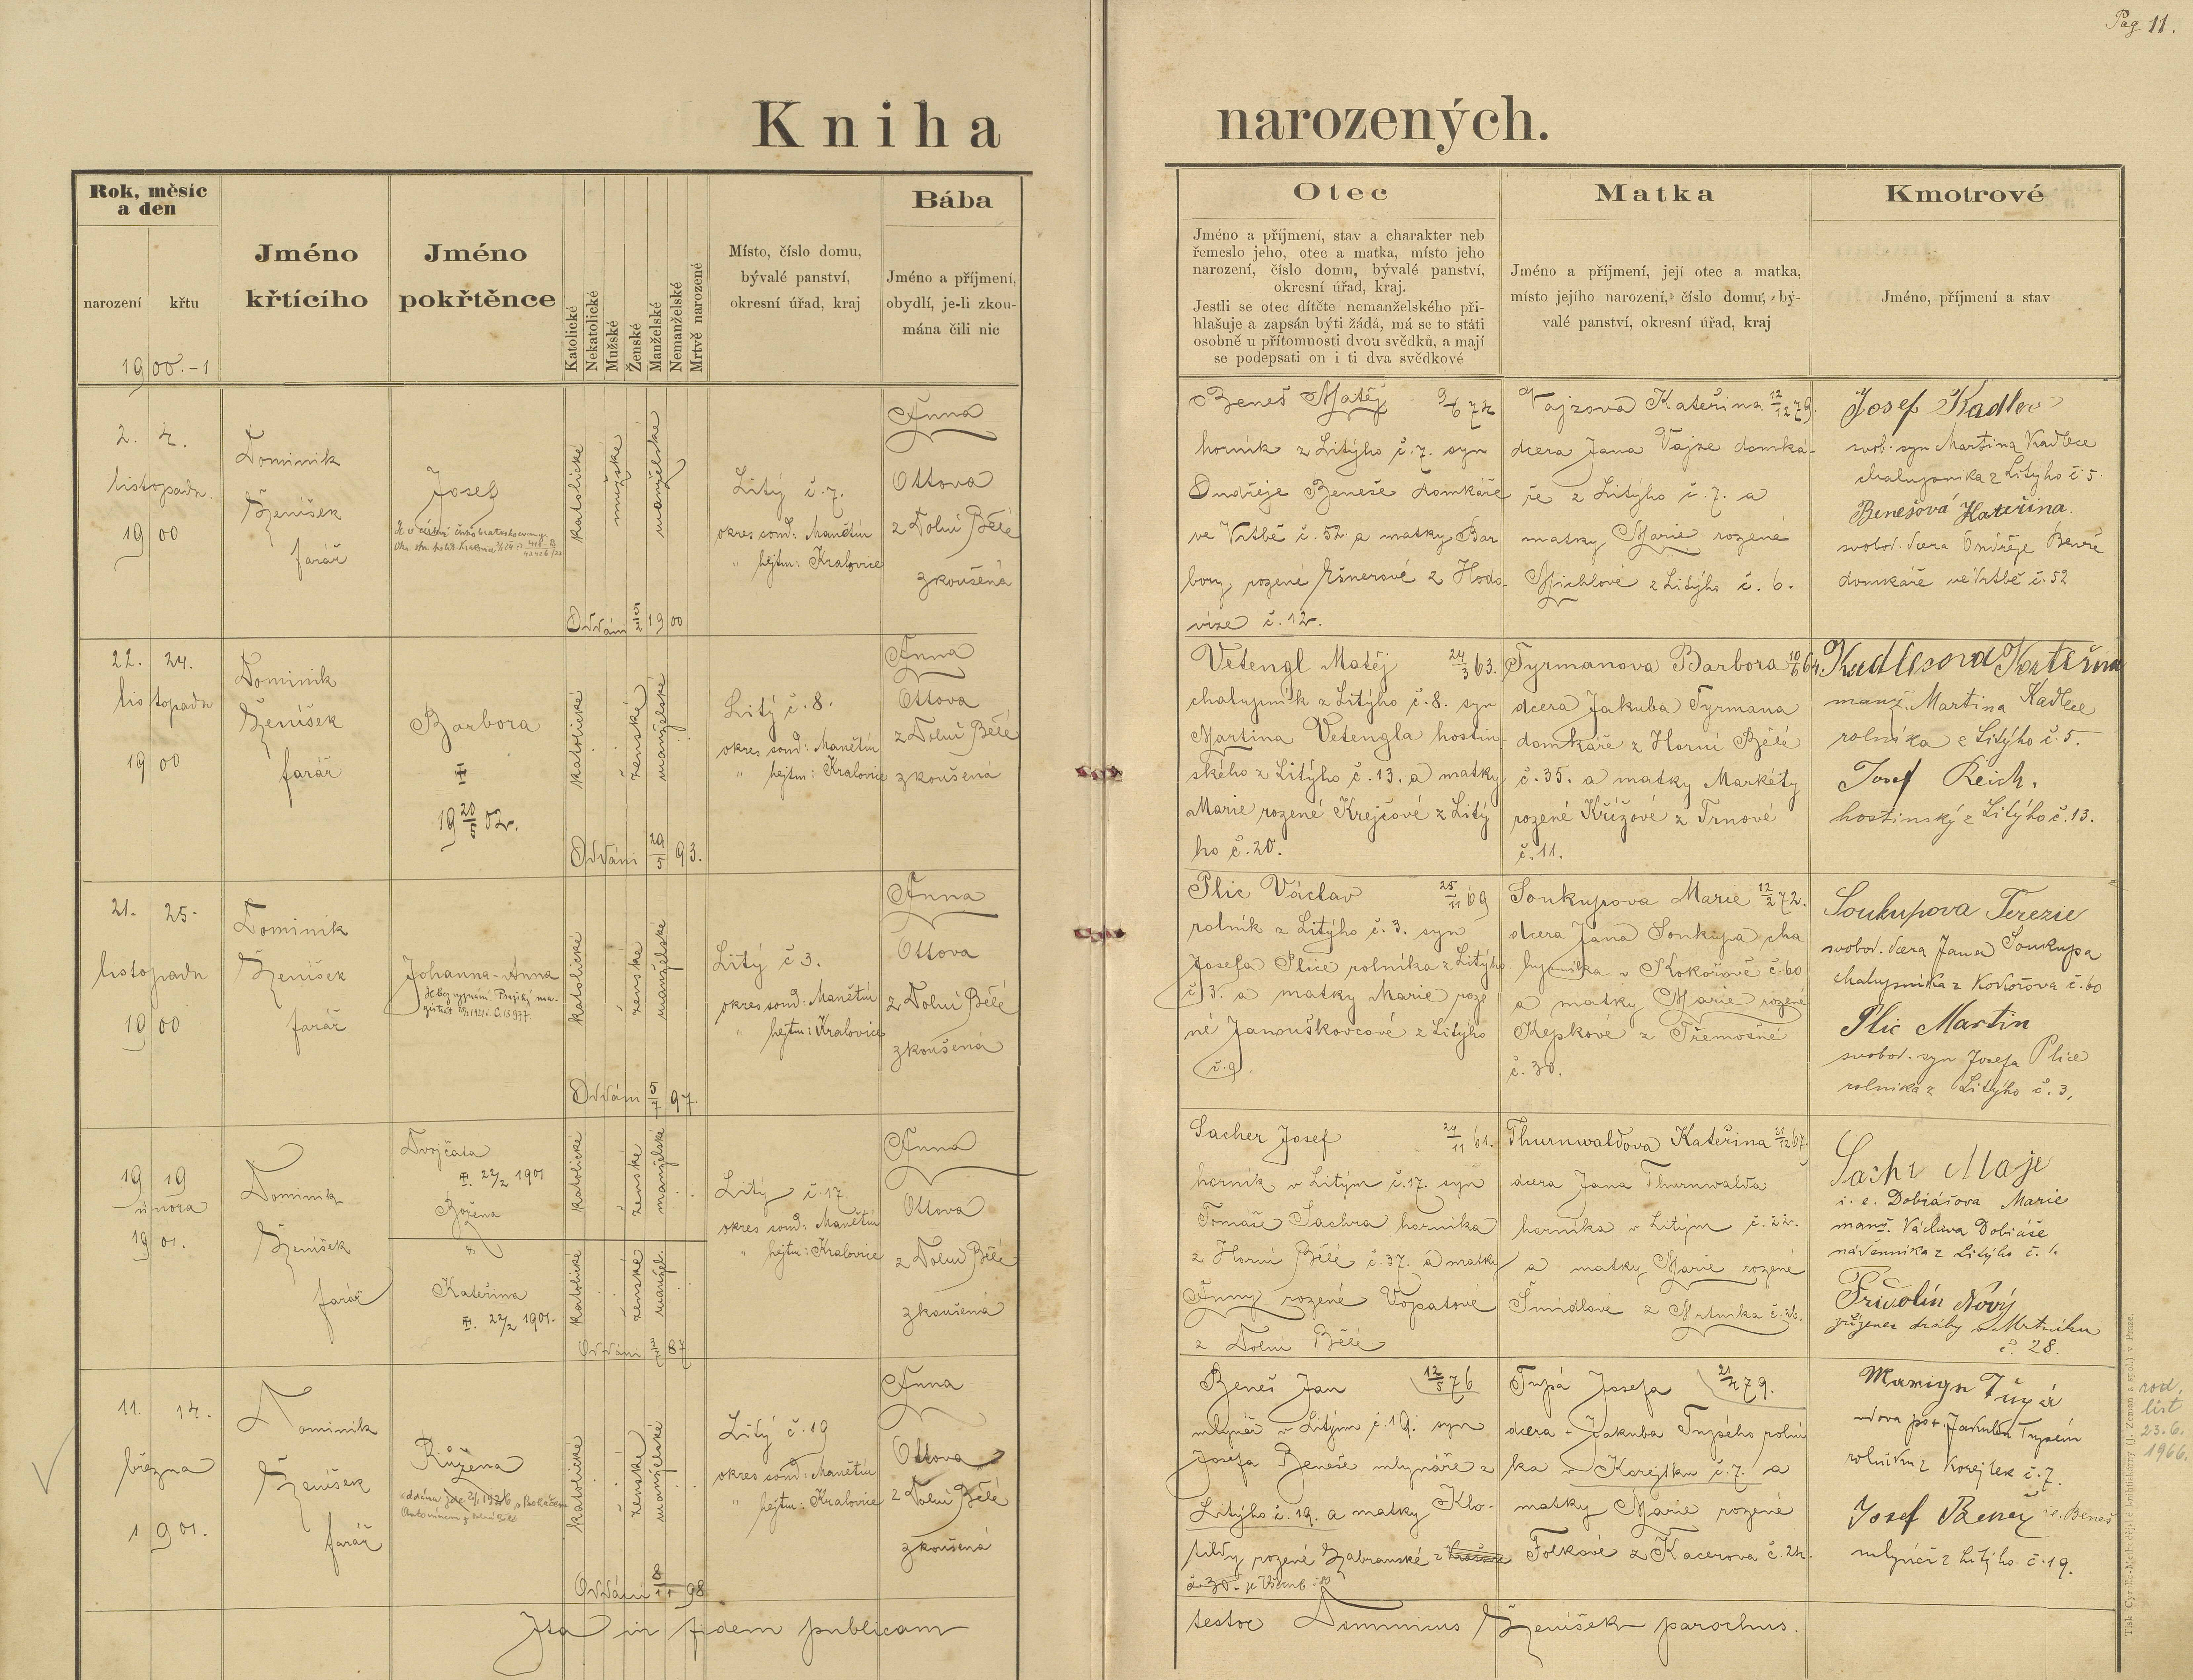 Pag 11.
Kniha narozených.
Rok, měsíc
a den
narození
křtu
1900.-1
Jméno
křtícího
Jméno
pokřtěnce
Katolické
Nekatolické
Mužské
Ženské
Manželské
Nemanželské
Mrtvě narozené
Místo, číslo domu,
bývalé panství,
okresní úřad, kraj
Bába
Jméno a příjmení,
obydlí, je-li zkou-
mána čili nic
Otec
Jméno a příjmení, stav a charakter neb
řemeslo jeho, otec a matka, místo jeho
narození, číslo domu, bývalé panství,
okresní úřad, kraj.
Jestli se otec dítěte nemanželského při-
hlašuje a zapsán býti žádá, má se to státi
osobně u přítomnosti dvou svědků, a mají
se podepsati on i ti dva svědkové
Matka
Jméno a příjmení, její otec a matka,
místo jejího narození, číslo domu, bý-
valé panství, okresní úřad, kraj
Kmotrové
Jméno, příjmení a stav
2. 4.
listopadu
1900
Dominik
Ženíšek
farář
Josef
katolické
mužské
manželské
Oddáni 1900
Litý č. 7.
okres soud: Manětín
" hejtm: Kralovice
Anna
Ottova
z Dolní Bělé
zkoušená
Beneš Matěj 9/6 74
horník z Litýho č. 7. syn
Ondřeje Beneše domkáře
ve Vrtbě č. 52. a matky Bar
bory rozené Ešnerové z Hodo-
vize č. 12.
Vajzova Kateřina 12/12 79.
dcera Jana Vajze domká-
ře z Litýho č. 7. a
matky Marie rozené
Michlové z Litýho č. 6.
Josef Kadlec
svob. syn Martina Kadlece
chalupníka z Litýho č. 5.
Benešová Kateřina.
svobod. dcera Ondřeje Beneše
domkáře ve Vrtbě č. 52
22. 24.
listopadu
1900
Dominik
Ženíšek
farář
Barbora
19 20/5 02.
katolické
ženské
manželské
Oddáni 93.
Litý č. 8.
okres soud: Manětín
" hejtm: Kralovice
Anna
Ottova
z Dolní Bělé
zkoušená
Vetengl Matěj 24/3 63.
chalupník z Litýho č. 8. syn
Martina Vetengla hostin-
ského z Litýho č. 13. a matky
Marie rozené Krejčové z Litý
ho č. 20.
Tyrmanova Barbora 10/6 64.
dcera Jakuba Tyrmana
domkáře z Horní Bělé
č. 35. a matky Markéty
rozené Křížové z Trnové
č. 11.
Kadlesova Kateřina
manž. Martina Kadlece
rolníka z Litýho č. 5.
Josef Reich.
hostinský z Litýho č. 13.
21. 25.
listopadu
1900
Dominik
Ženíšek
farář
Johanna-Anna
Je bez vyznání Pražský ma-
gistrát
katolické
ženské
manželské
Oddáni 97.
Litý č 3.
okres soud: Manětín
" hejtm: Kralovice
Anna
Ottova
z Dolní Bělé
zkoušená
Plic Václav 25/11 69
rolník z Litýho č. 3. syn
Josefa Plice rolníka z Litýho
č 3. a matky Marie roze
né Janouškovcové z Litýho
č. 9.
Soukupova Marie 12/2 72.
dcera Jana Soukupa cha
lupníka v Kokořově č. 60
a matky Marie rozené
Kepkové z Třemošné
č. 30.
Soukupova Terezie
svobod. dcera Jana Soukupa
chalupníka z Kokořova č. 60
Plic Martin
svobod. syn Josefa Plice
rolníka z Litýho č. 3.
19 19
února
1901.
Dominik
Ženíšek
farář
Dvojčata
22/2 1901
Božena
Kateřina
22/2 1901.
katolické
ženské
manželské
katolické
ženské
manžel.
Oddáni 87
Litý č. 17.
okres soud: Manětín
" hejtm: Kralovice
Anna
Ottova
z Dolní Bělé
zkoušená
Sacher Josef 24/11 61.
horník v Litým č. 17. syn
Tomáše Sachra, horníka
z Horní Bělé č. 37. a matky
Anny rozené Vopatové
z Dolní Bělé
Thurnwaldova Kateřina 21/12 67
dcera Jana Thurnwalda
horníka v Litým č. 22.
a matky Marie rozené
Šmídlové z Mrtníka č. 26.
i. e. Dobiášova Marie
manž. Václava Dobiáše
nádenníka z Litýho č. 1.
Fridolín Nový
zřízenec dráhy v Mrtníku
č. 28.
11. 14.
března
1901.
Dominik
Ženíšek
farář
Růžena
katolické
ženské
manželské
Oddáni 98
Litý č. 19
okres soud: Manětín
" hejtm: Kralovice
Anna
Ottova
z Dolní Bělé
zkoušená
Beneš Jan 12/5 76
mlynář v Litým č. 19. syn
Josefa Beneše mlynáře z
Litýho č. 19. a matky Klo-
tildy rozené Zabranské z
č. 30.
Tupá Josefa 21/4 79.
dcera Jakuba Tupého rolní
ka v Korejtku č. 7. a
matky Marie rozené
Folkové z Kacerova č. 24.
vdova po + Jakubu Tupém
rolníku z Korejtek č. 7.
Josef Beneš i.e. Beneš
mlynář z Litýho č. 19.
rod.
list
23.6.
1966.
Ita in fidem publicam testor Dominicus Ženíšek parochus.
Tisk Cyrillo-Methodějské knihtiskárny (J. Zeman a spol.) v Praze.